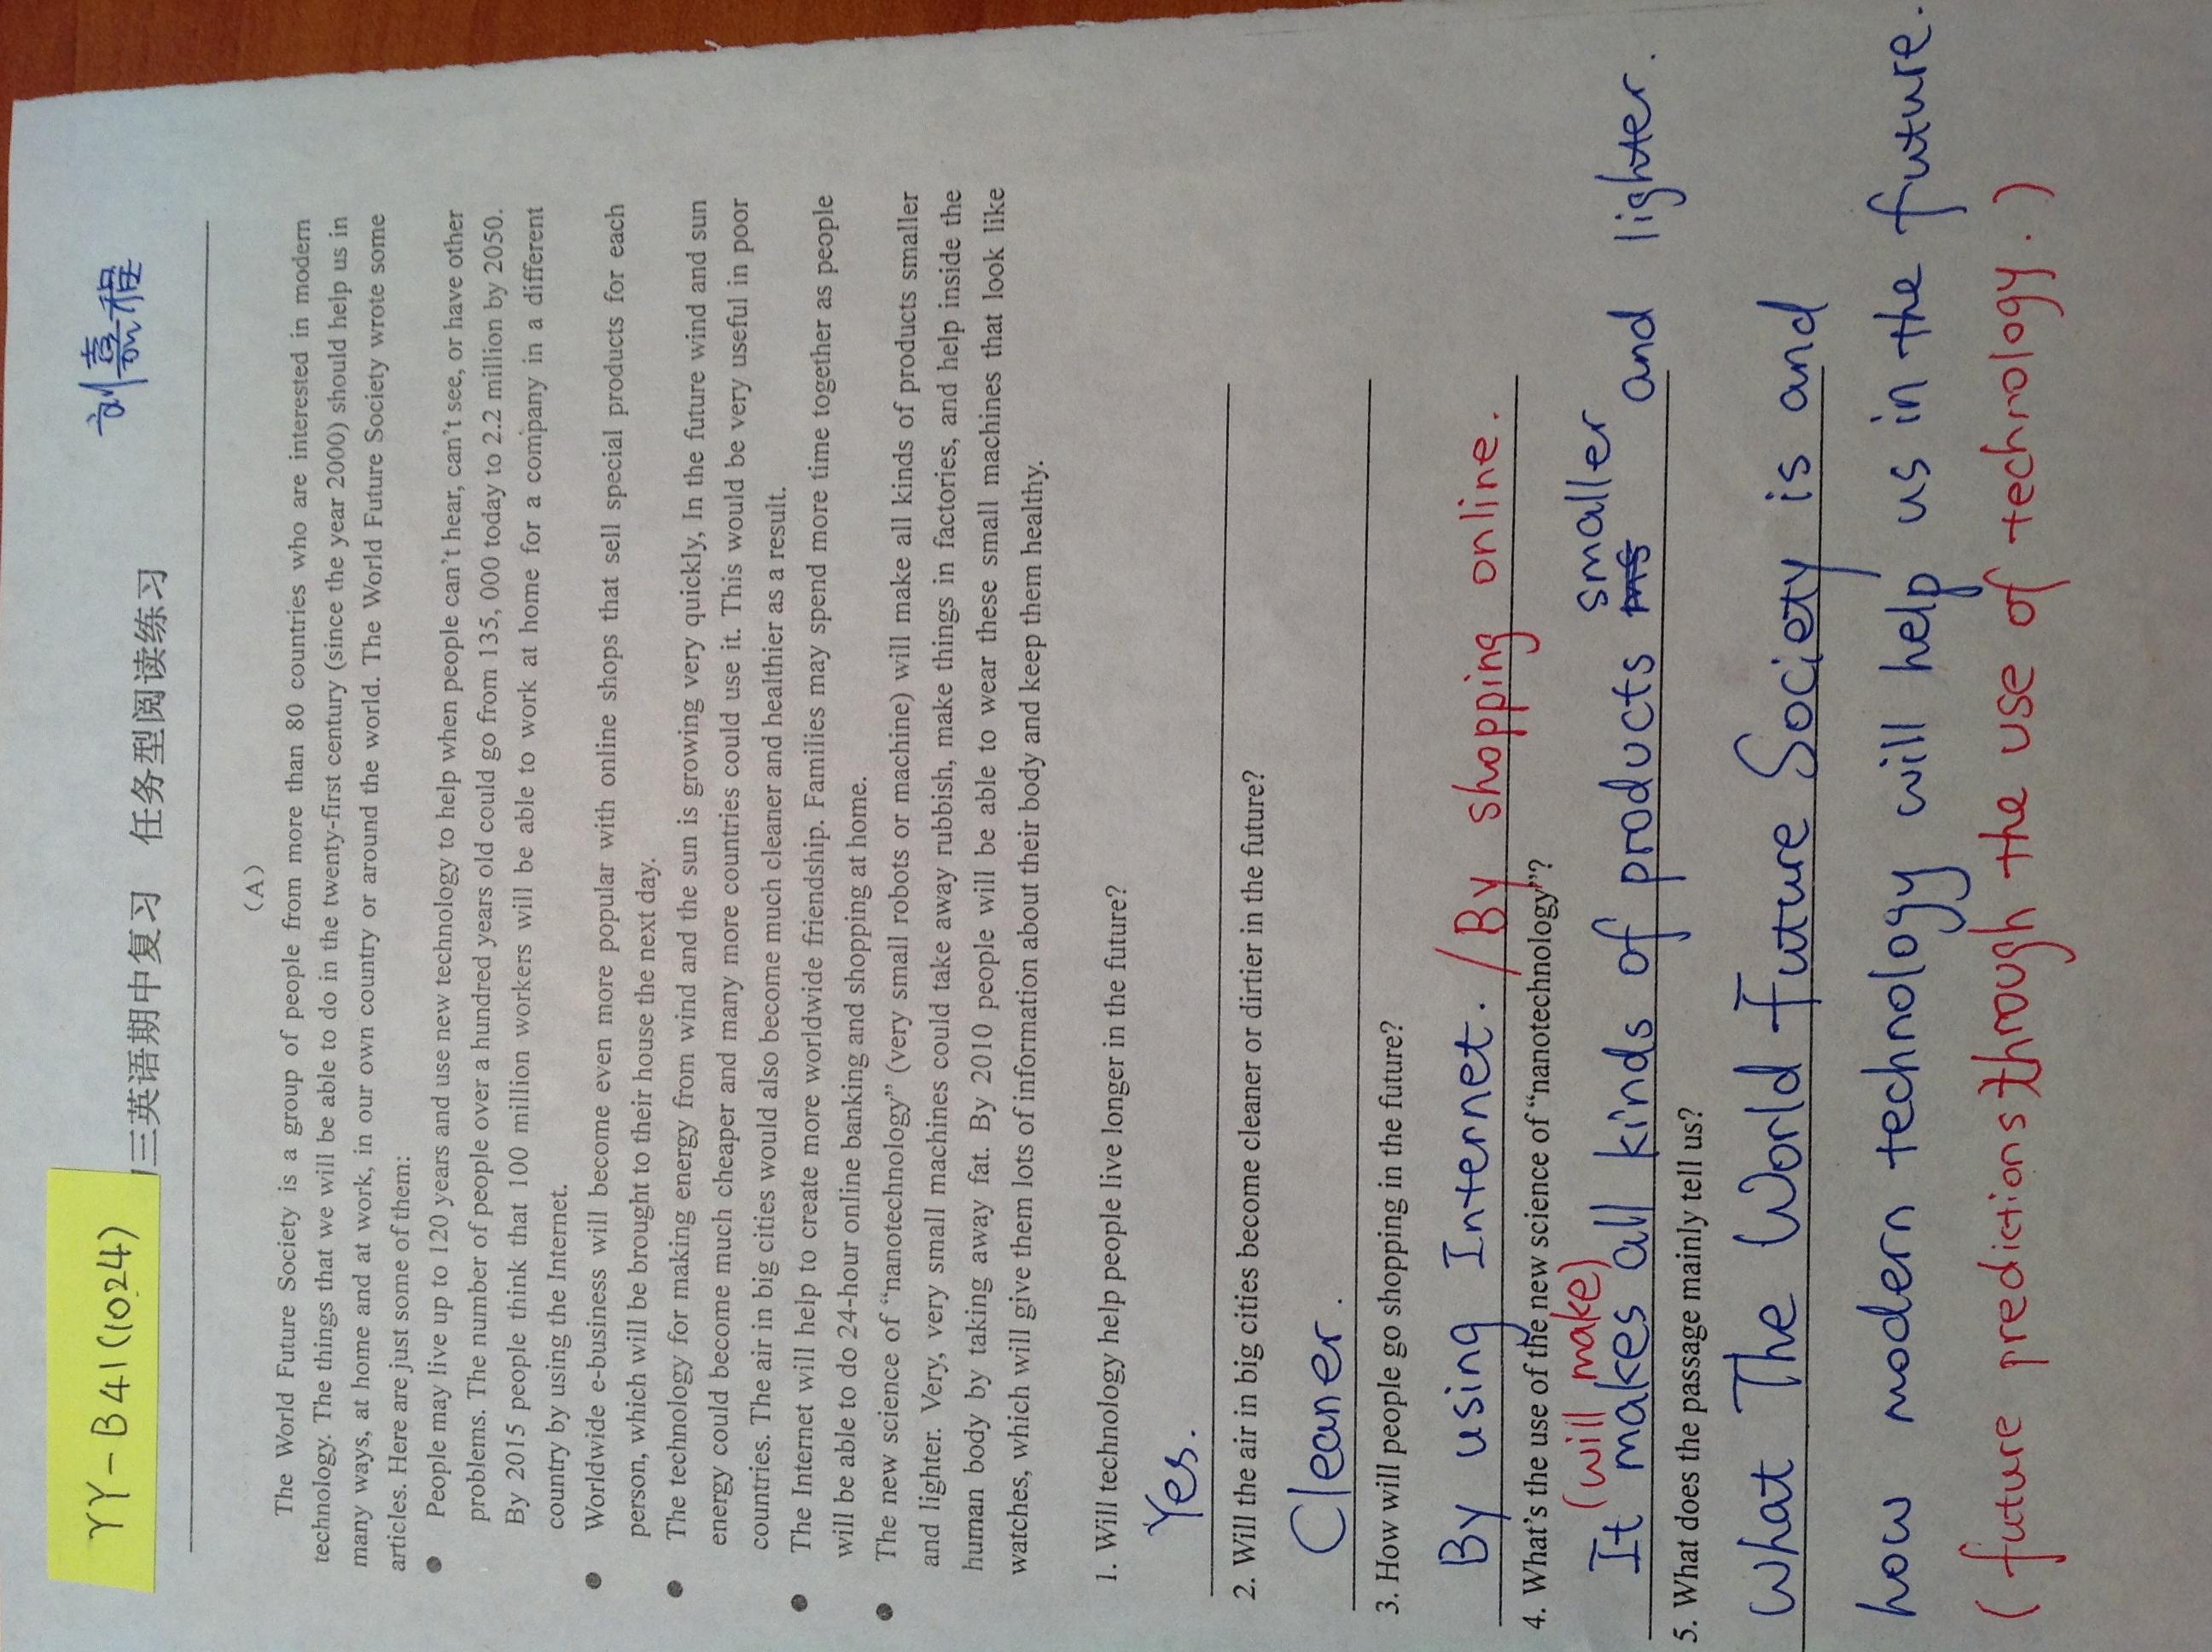 YY-B41(1024)
刘嘉程
三英语期中复习 任务型阅读练习
(A)
The World Future Society is a group of people from more than 80 countries who are interested in modern
technology. The things that we will be able to do in the twenty-first century (since the year 2000) should help us in
many ways, at home and at work, in our own country or around the world. The World Future Society wrote some
articles. Here are just some of them:
● People may live up to 120 years and use new technology to help when people can't hear, can't see, or have other
problems. The number of people over a hundred years old could go from 135, 000 today to 2.2 million by 2050.
By 2015 people think that 100 million workers will be able to work at home for a company in a different
country by using the Internet.
● Worldwide e-business will become even more popular with online shops that sell special products for each
person, which will be brought to their house the next day.
● The technology for making energy from wind and the sun is growing very quickly, In the future wind and sun
energy could become much cheaper and many more countries could use it. This would be very useful in poor
countries. The air in big cities would also become much cleaner and healthier as a result.
● The Internet will help to create more worldwide friendship. Families may spend more time together as people
will be able to do 24-hour online banking and shopping at home.
● The new science of “nanotechnology” (very small robots or machine) will make all kinds of products smaller
and lighter. Very, very small machines could take away rubbish, make things in factories, and help inside the
human body by taking away fat. By 2010 people will be able to wear these small machines that look like
watches, which will give them lots of information about their body and keep them healthy.
1. Will technology help people live longer in the future?
Yes.
2. Will the air in big cities become cleaner or dirtier in the future?
Cleaner.
3. How will people go shopping in the future?
By using Internet. /By shopping online.
4. What's the use of the new science of “nanotechnology”?
(will make)
It makes all kinds of products smaller and lighter.
5. What does the passage mainly tell us?
What The World Future Society is and
how modern technology will help us in the future.
(future predictions through the use of technology.)